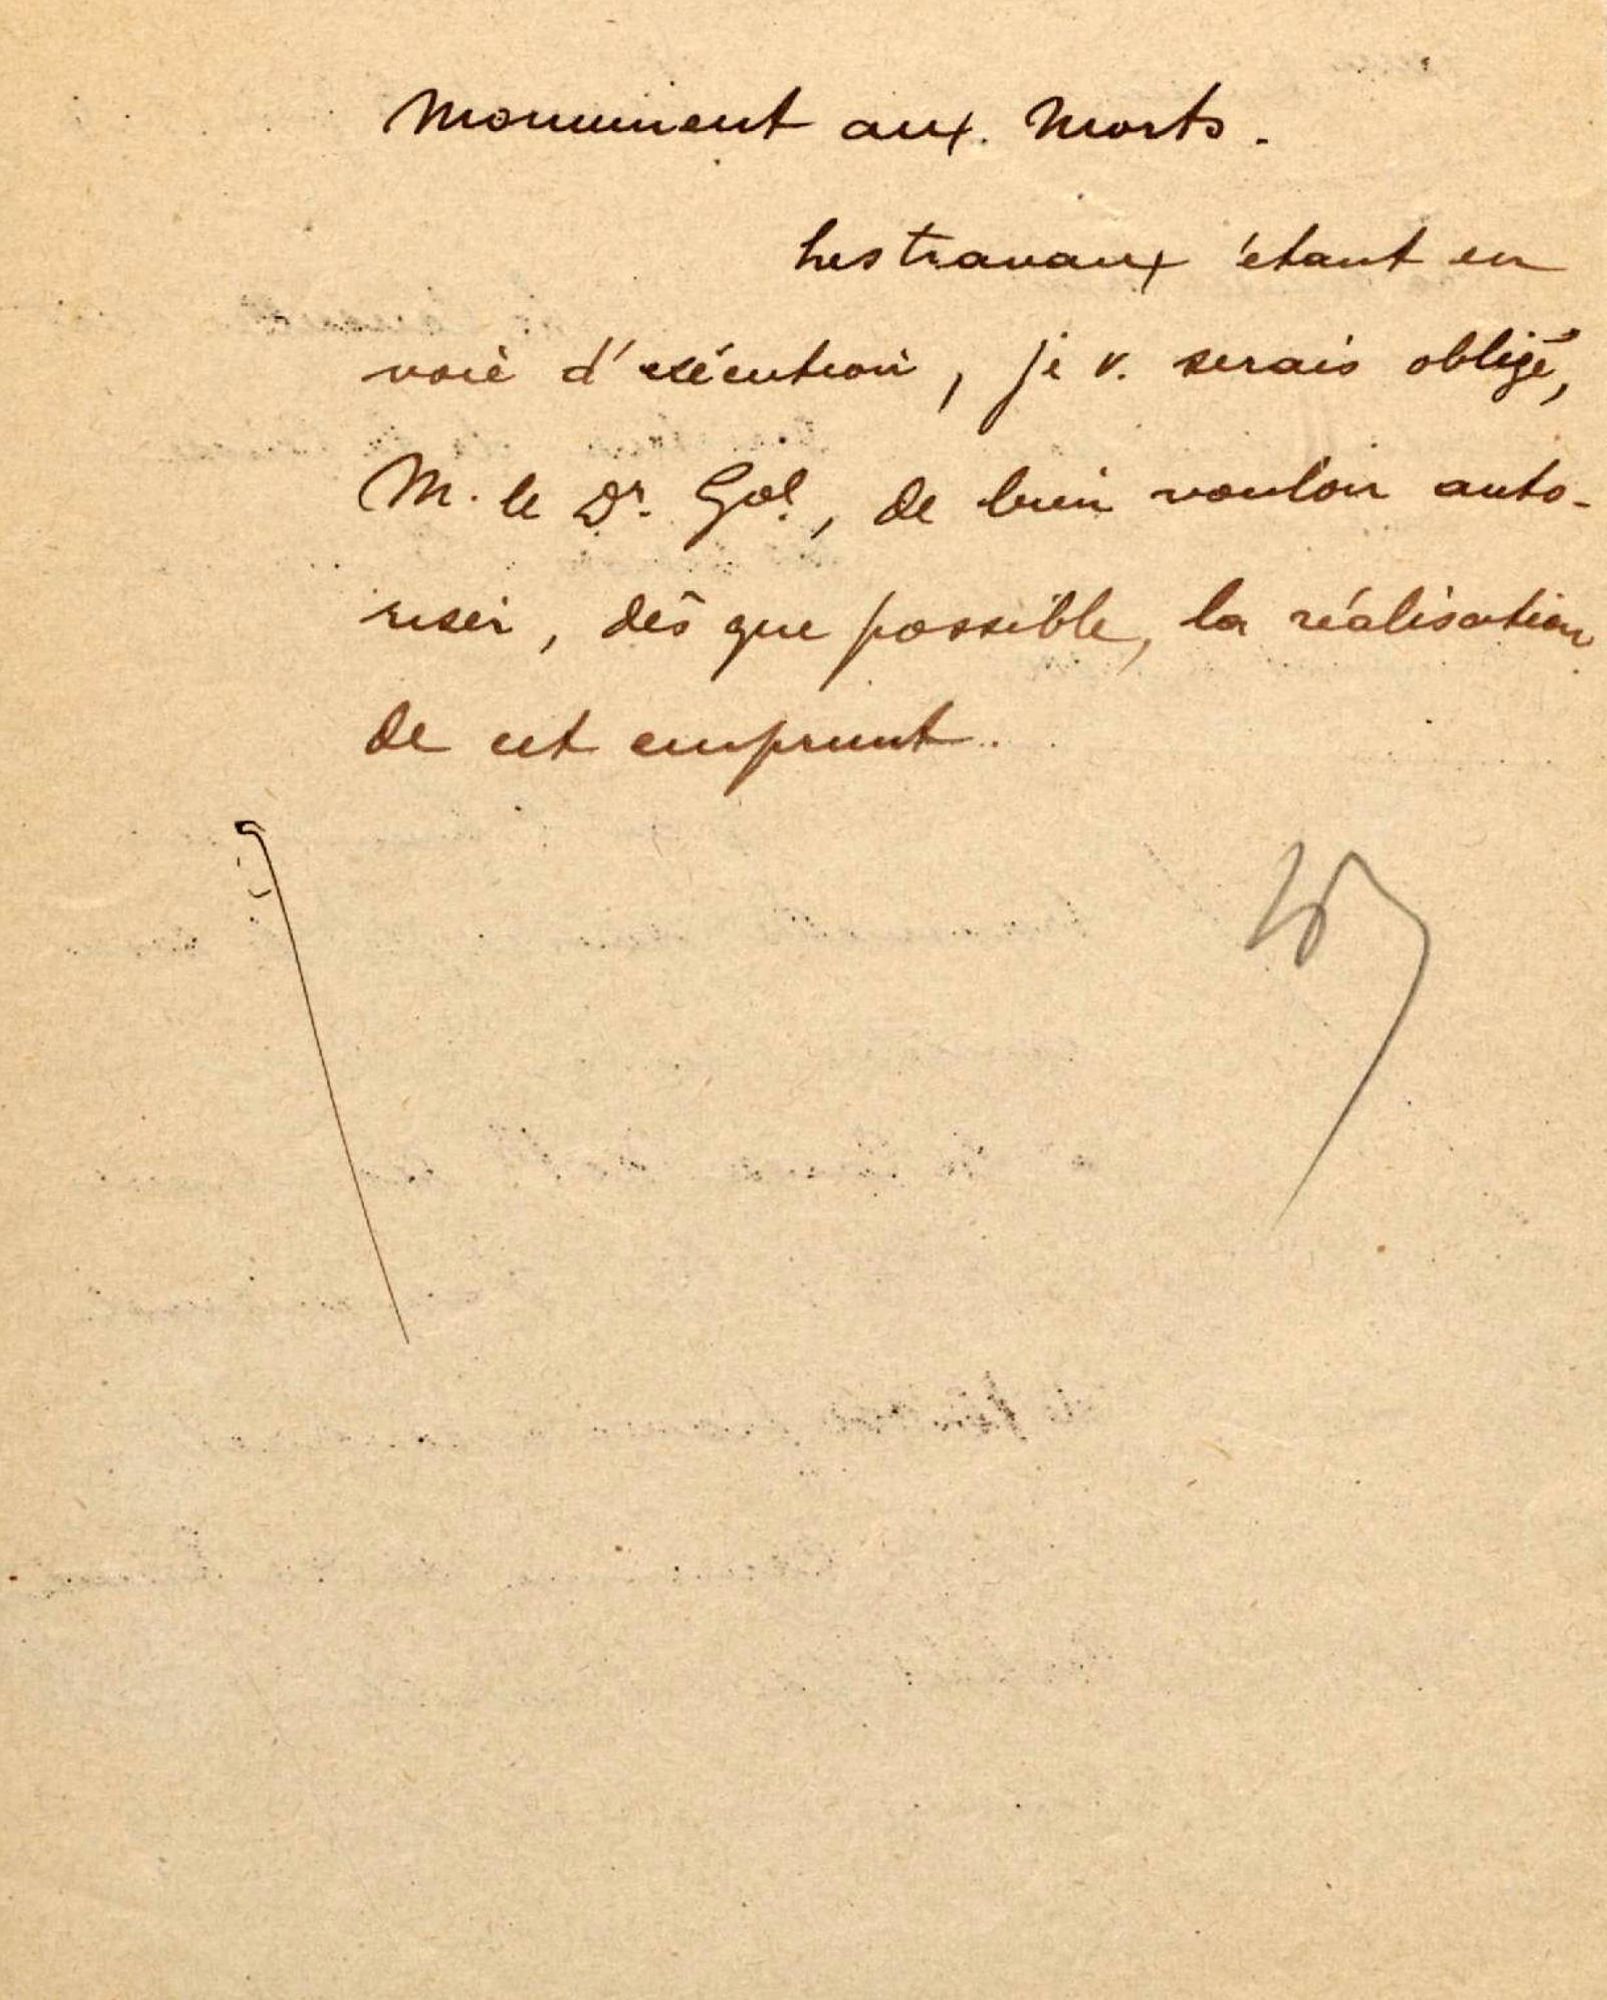 Monument aux Morts.
Les travaux étant en
voie d'exécution, je v. serais obligé,
M. le Dr. Gal, de bien vouloir auto-
riser, dès que possible, la réalisation
de cet emprunt.